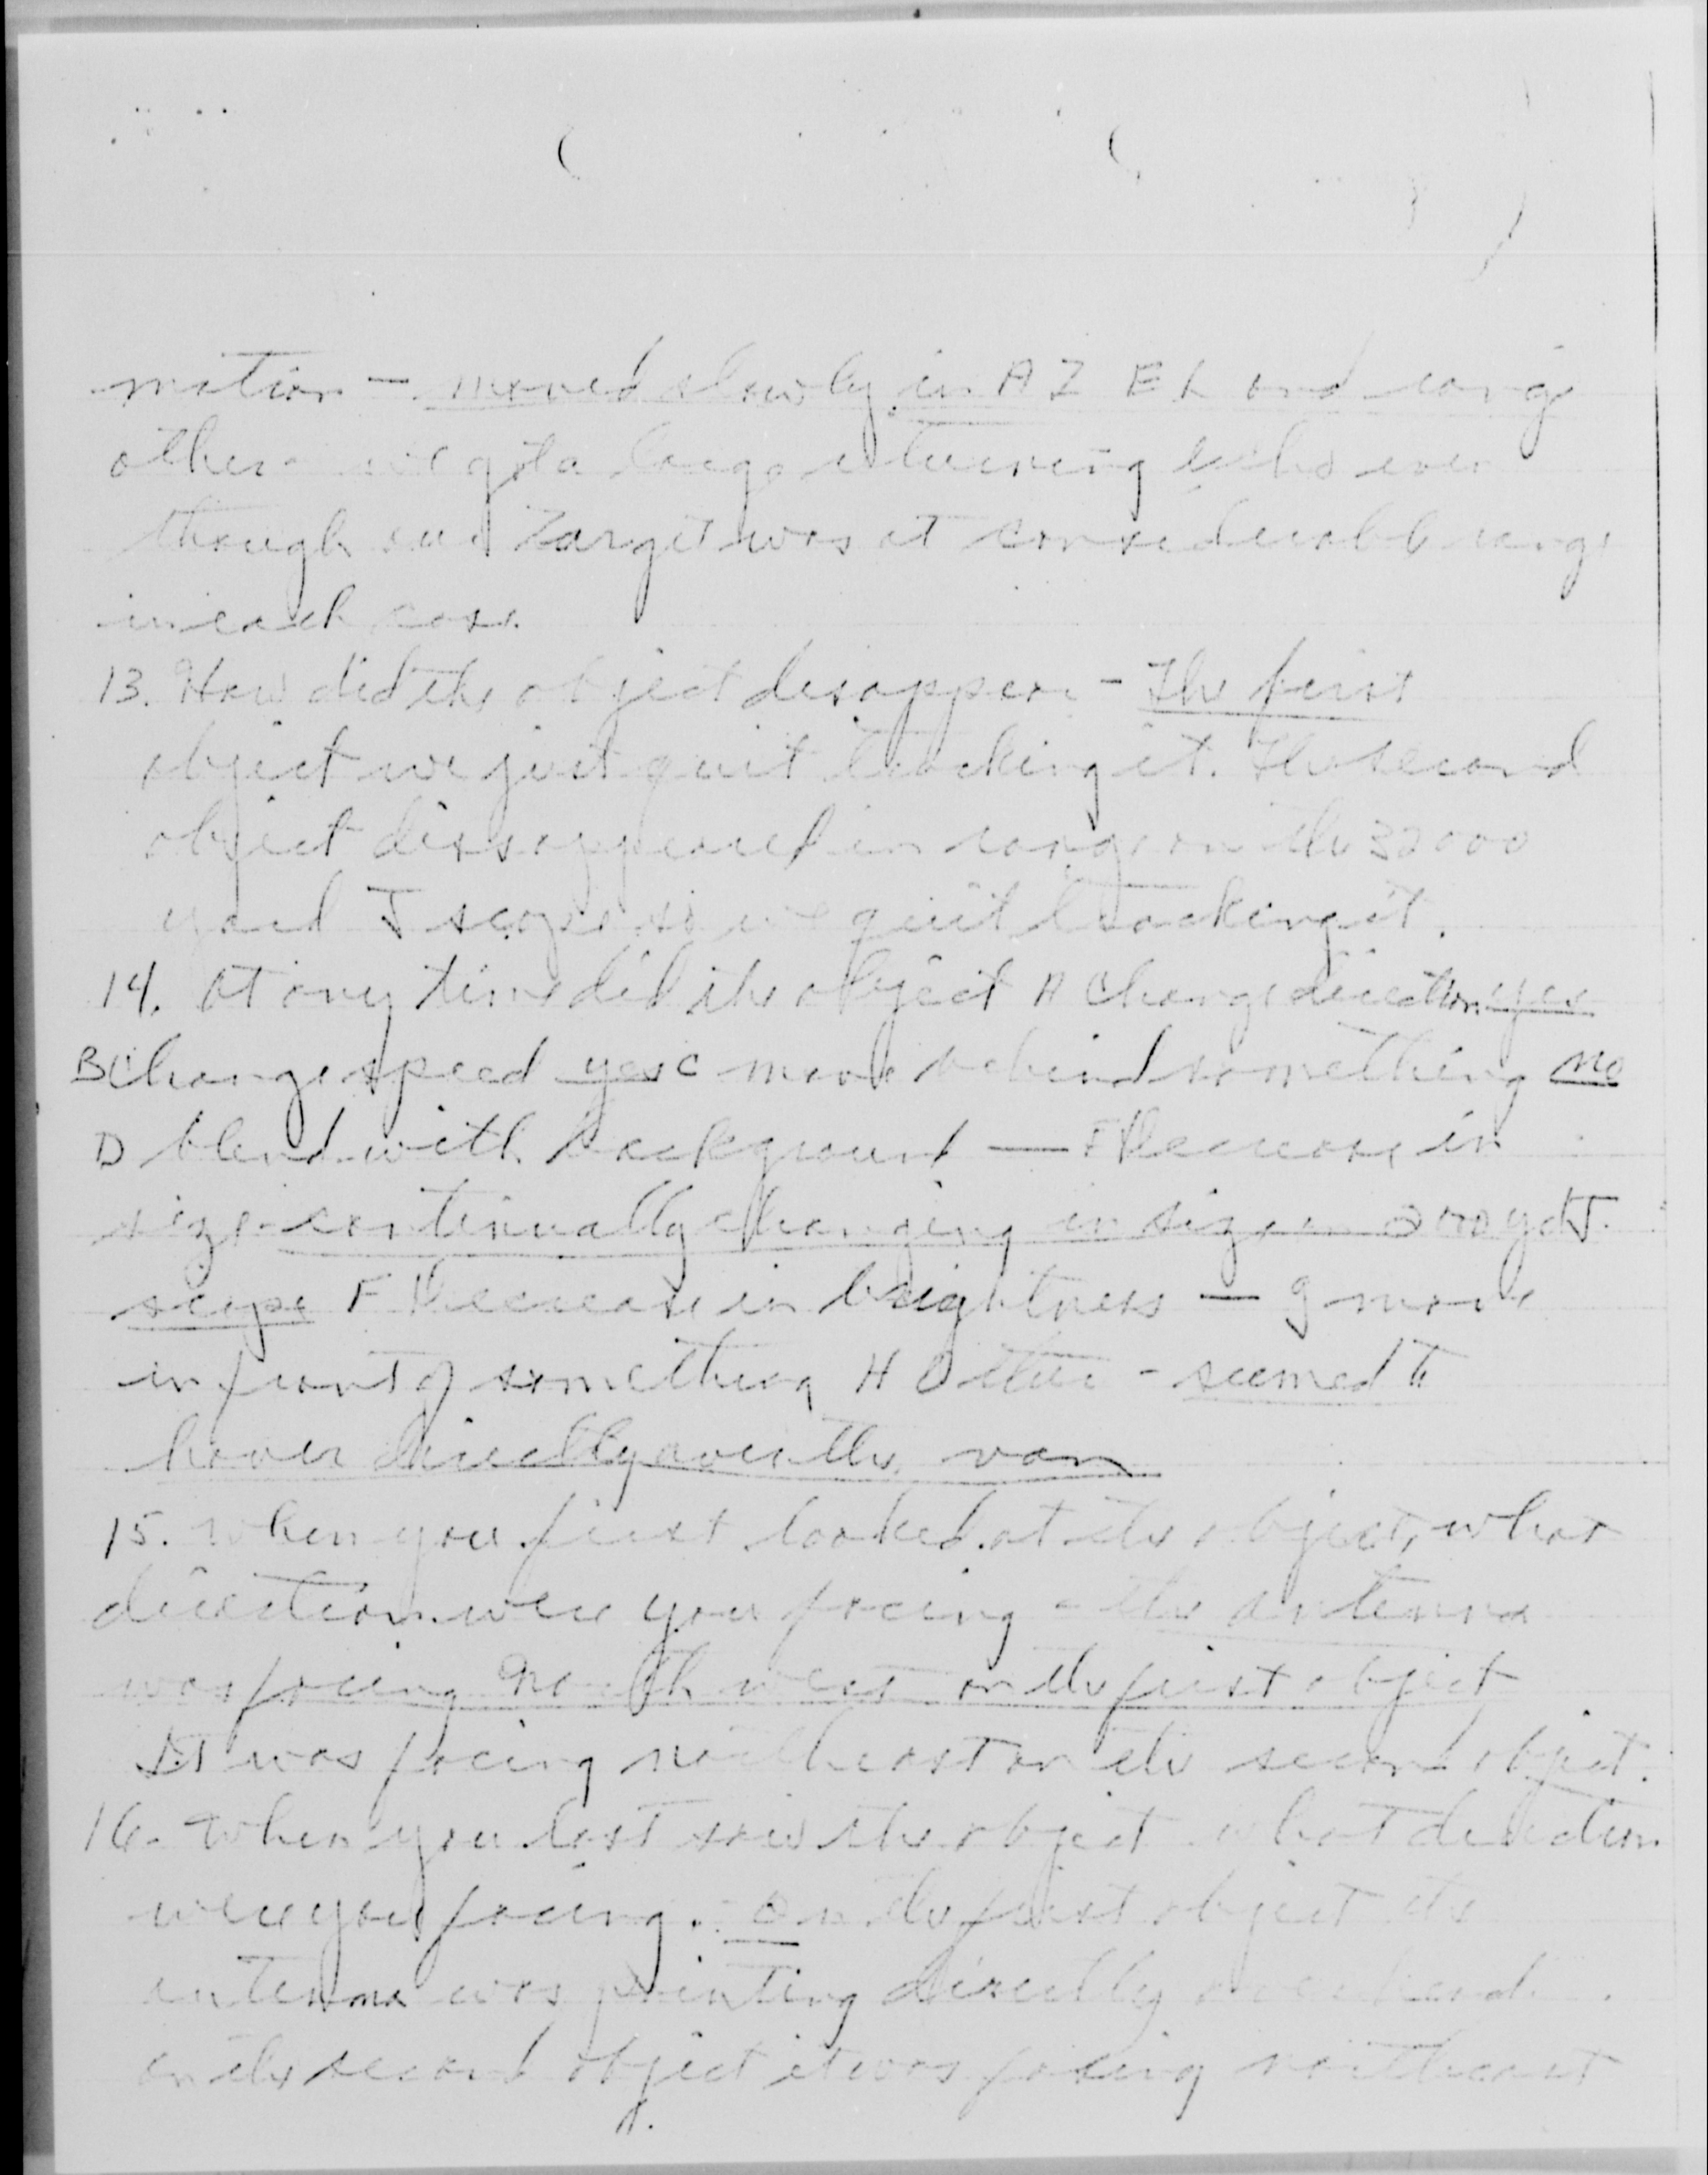 motion - moved slowly in AZ EL and range
other - we got a large returning echo even
though our Target was at considerable range
in each case.
13. How did the object disappear - The first
object we just quit tracking it. The second
object dissappeared in range on the 32000
yard J scope so we quit tracking it.
14. At any time did the object A Change direction yes
B Change speed yes C move behind something no
D blend with background — E Decrease in
size - continually changing in size on 2000 yd J.
scope F Decrease in brightness - G move
in front of something H Other - seemed to
hover directly over the van
15. When you first looked at the object, what
direction were you facing - the antenna
was facing North west on the first object
It was facing northeast on the second object.
16. When you last saw the object what direction
were you facing. On the first object the
antenna was pointing directly overhead.
on the second object it was facing northeast